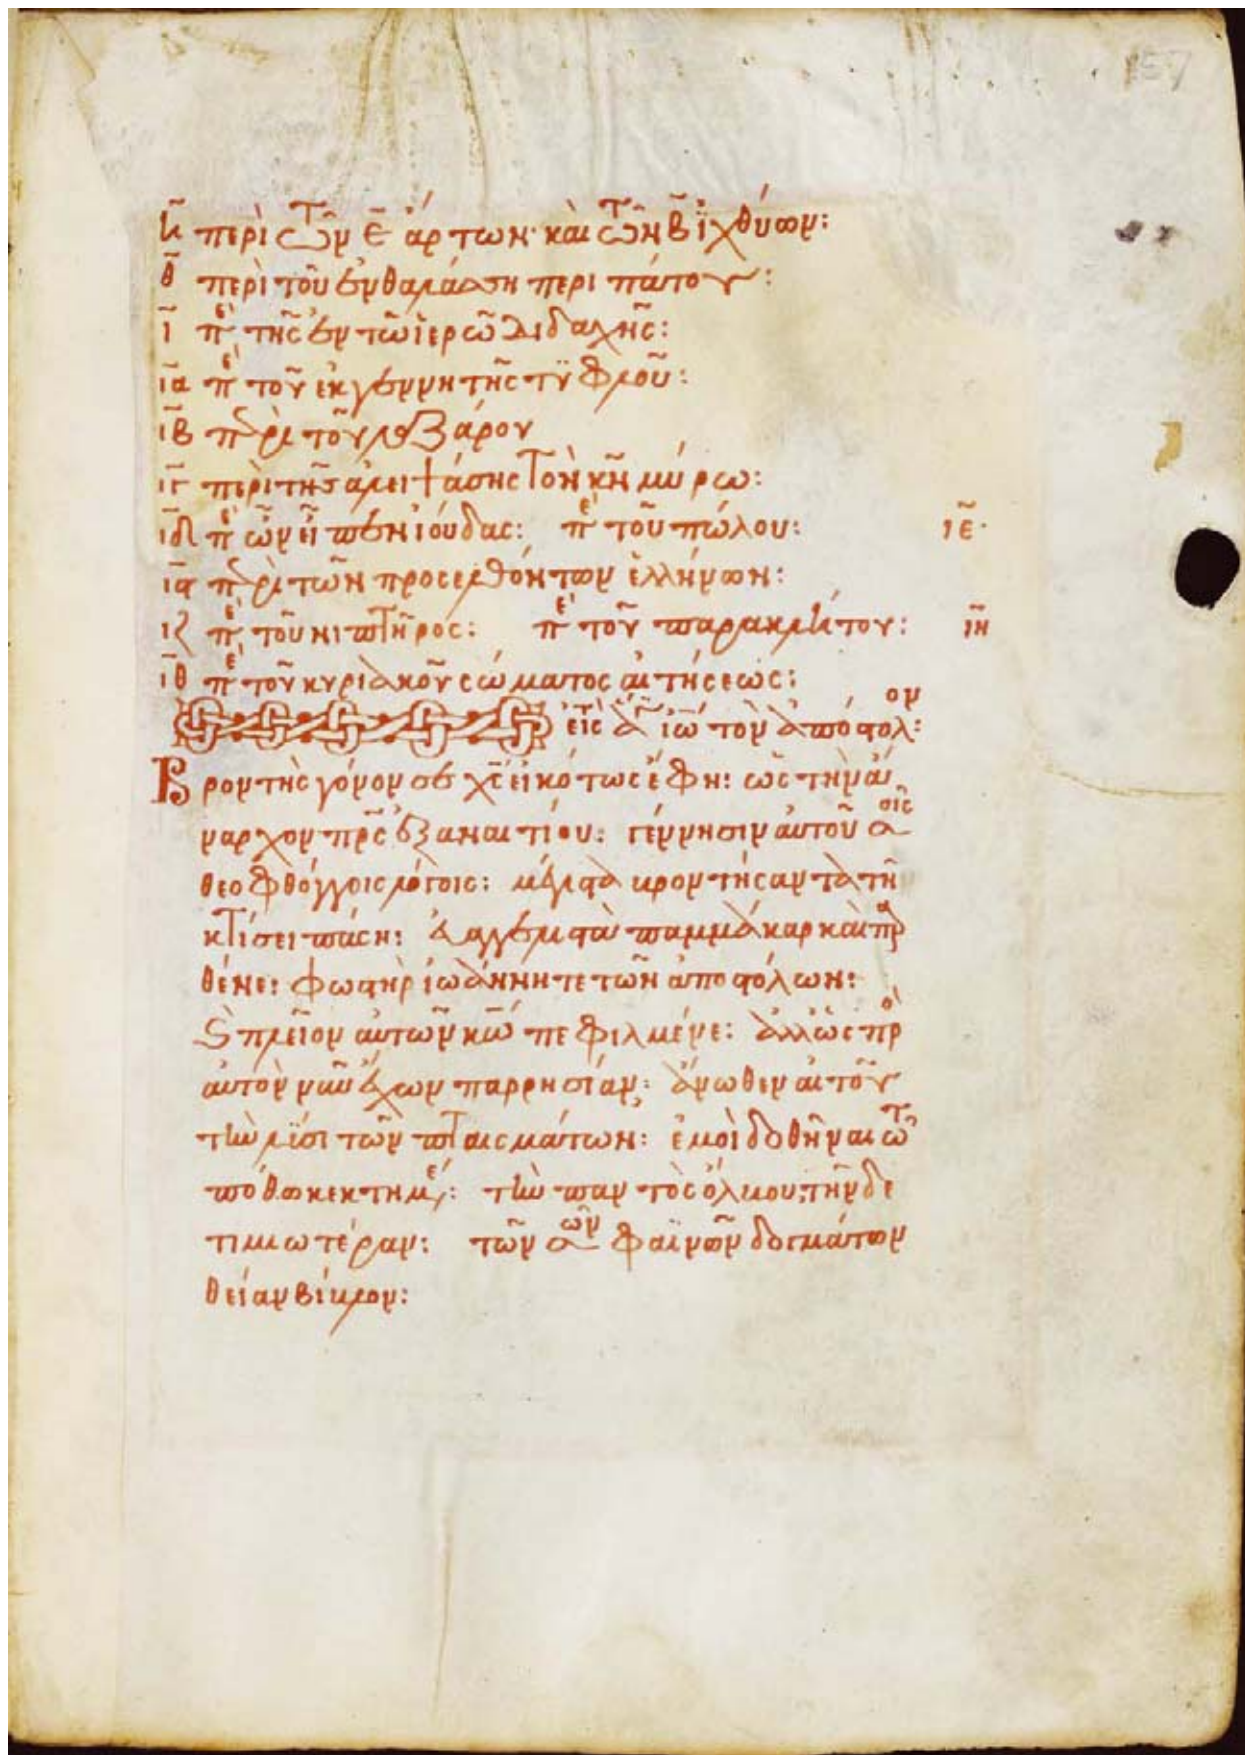 157
η̅ περὶ τῶν ε̅ ἄρτων· καὶ τῶν β̅ ἰχθύων:
θ̅ περὶ τοῦ ἐν θαλάσση περιπάτου:
ι̅ πὲ τῆς ἐν τῶ ἱερῶ διδαχῆς:
ια̅ πὲ τοῦ ἐκ γεννητῆς τυφλοῦ:
ιβ̅ περὶ τοῦ λαζάρου
ιγ̅ περὶ τῆς ἀλειψάσης τὸν κ̅ν̅ μύρω:
ιδ̅ πὲ ὧν εἶπεν ἰούδας: πὲ τοῦ πώλου: ιε̅·
ιϛ̅ περὶ τῶν προσελθόντων ἑλλήνων:
ιζ̅ πὲ τοῦ νιπτῆρος: πὲ τοῦ παρακλήτου: ιη̅
ιθ̅ πὲ τοῦ κυριακοῦ σώματος αἰτήσεως:
εἰς τὸν ἅγιον ἰω̅ τὸν ἀπόστολον:
Βροντῆς γόνον σε χ̅ς̅ εἰκότως ἔφη: ὡς τὴν ἄ
ναρχον π̅ρ̅ς̅ ἐξ ἀναιτίου: γέννησιν αὐτοῦ σαῖς
θεοφθόγγοις λόγοις: μέγιστα βροντήσαντα τῆ
κτίσει πάση: ἀλλ' παμμάκαρ καὶ παρ
θένε: φωστὴρ ἰωάννη τε τῶν ἀποστόλων:
πλεῖον αὐτῶν κ̅ω̅ πεφιλμένε: ἀλλ' ὡς πρὸ
αὐτὸν νῦν ἔχων παρρησίαν: ἄνωθεν αἰτοῦ
τὴν λύσι τῶν πταισμάτων: ἐμοὶ δοθῆναι τῶ
πόθω κεκτημέ: τὴν παντὸς ὄλβου, τήνδε
τιμιωτέραν: τῶν σῶν φαεινῶν δογμάτων
θείαν βίβλον: